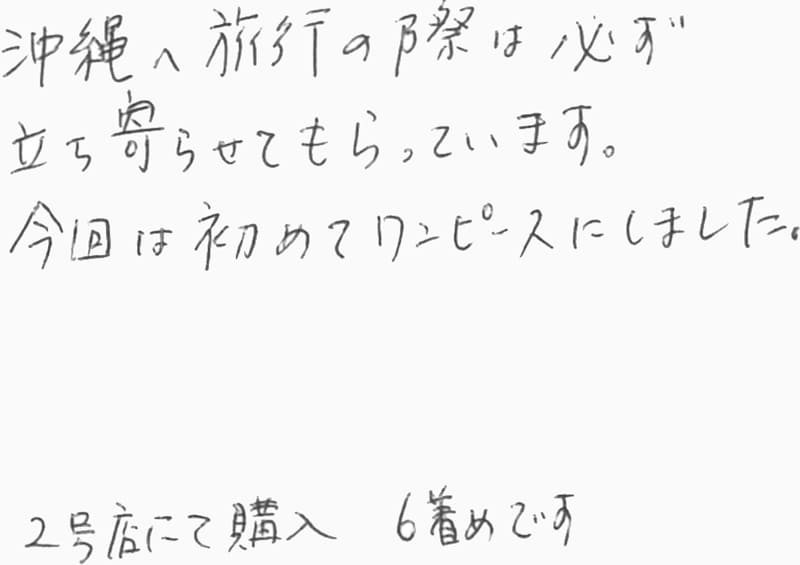 沖縄へ旅行の際は必ず
立ち寄らせてもらっています。
今回は初めてワンピースにしました。
2号店にて購入 6着めです